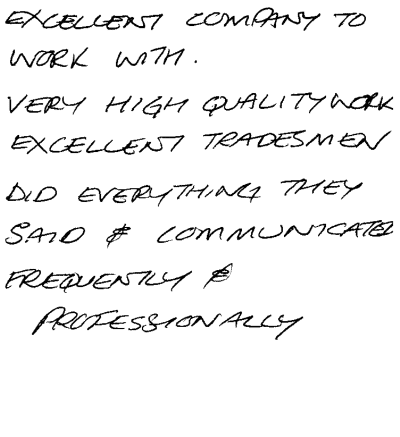 EXCELLENT COMPANY TO
WORK WITH.
VERY HIGH QUALITY WORK
EXCELLENT TRADESMEN
DID EVERYTHING THEY
SAID & COMMUNICATED
FREQUENTLY &
PROFESSIONALLY